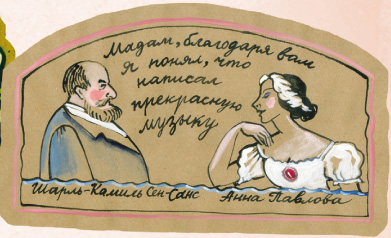 Мадам, благодаря вам
я понял, что
написал
прекрасную
музыку
Шарль-Камиль Сен-Санс
Анна Павлова